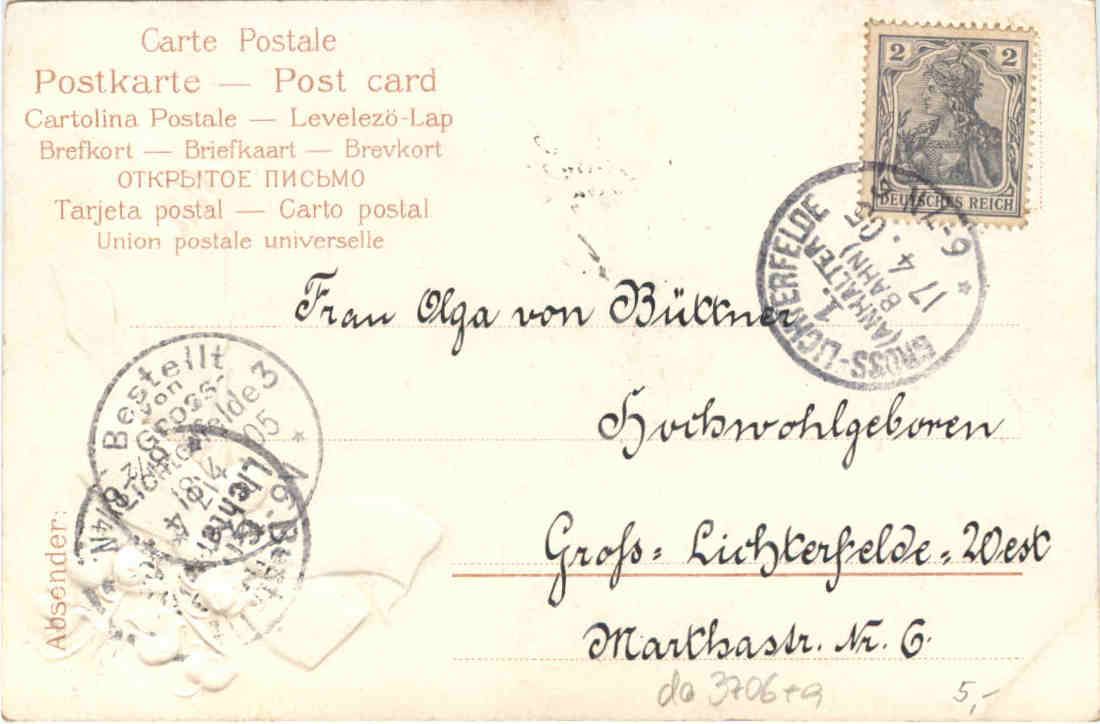 Carte Postale
Postkarte — Post card
Cartolina Postale — Levelező-Lap
Brefkort — Briefkaart — Brevkort
ОТКРЫТОЕ ПИСЬМО
Tarjeta postal — Carto postal
Union postale universelle
2 2
DEUTSCHES REICH
GROSS-LICHTERFELDE
1.
(ANHALTER
BAHN)
17 4.05
6-7N
Frau Olga von Büttner
Hochwohlgeboren
Groſs-Lichterfelde-West
Marthastr. Nr. 6.
Bestellt
von
Gross-
Lichterfelde 3
Absender:
da 3706+a
5,-